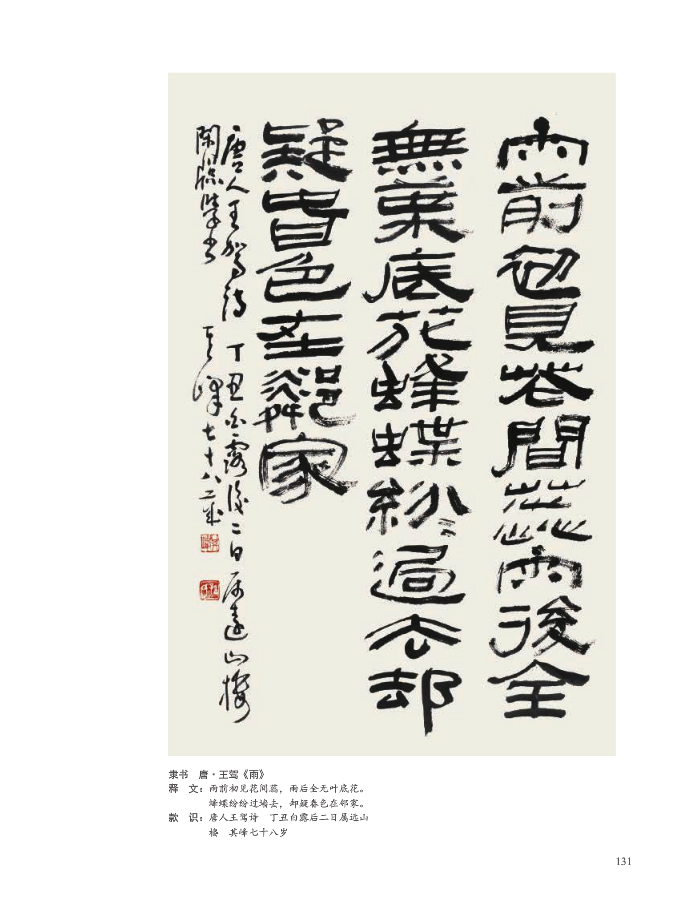 雨前初見花間蕊雨後全
無葉底花蜂蝶紛〻過墻去却
疑春色在鄰家
唐人王驾诗 丁丑白露後二日屬遠山樓
其峰七十八岁
隶书 唐·王驾《雨》
释 文：雨前初见花间蕊，雨后全无叶底花。
蜂蝶纷纷过墙去，却疑春色在邻家。
款 识：唐人王驾诗 丁丑白露后二日属远山
楼 其峰七十八岁
131